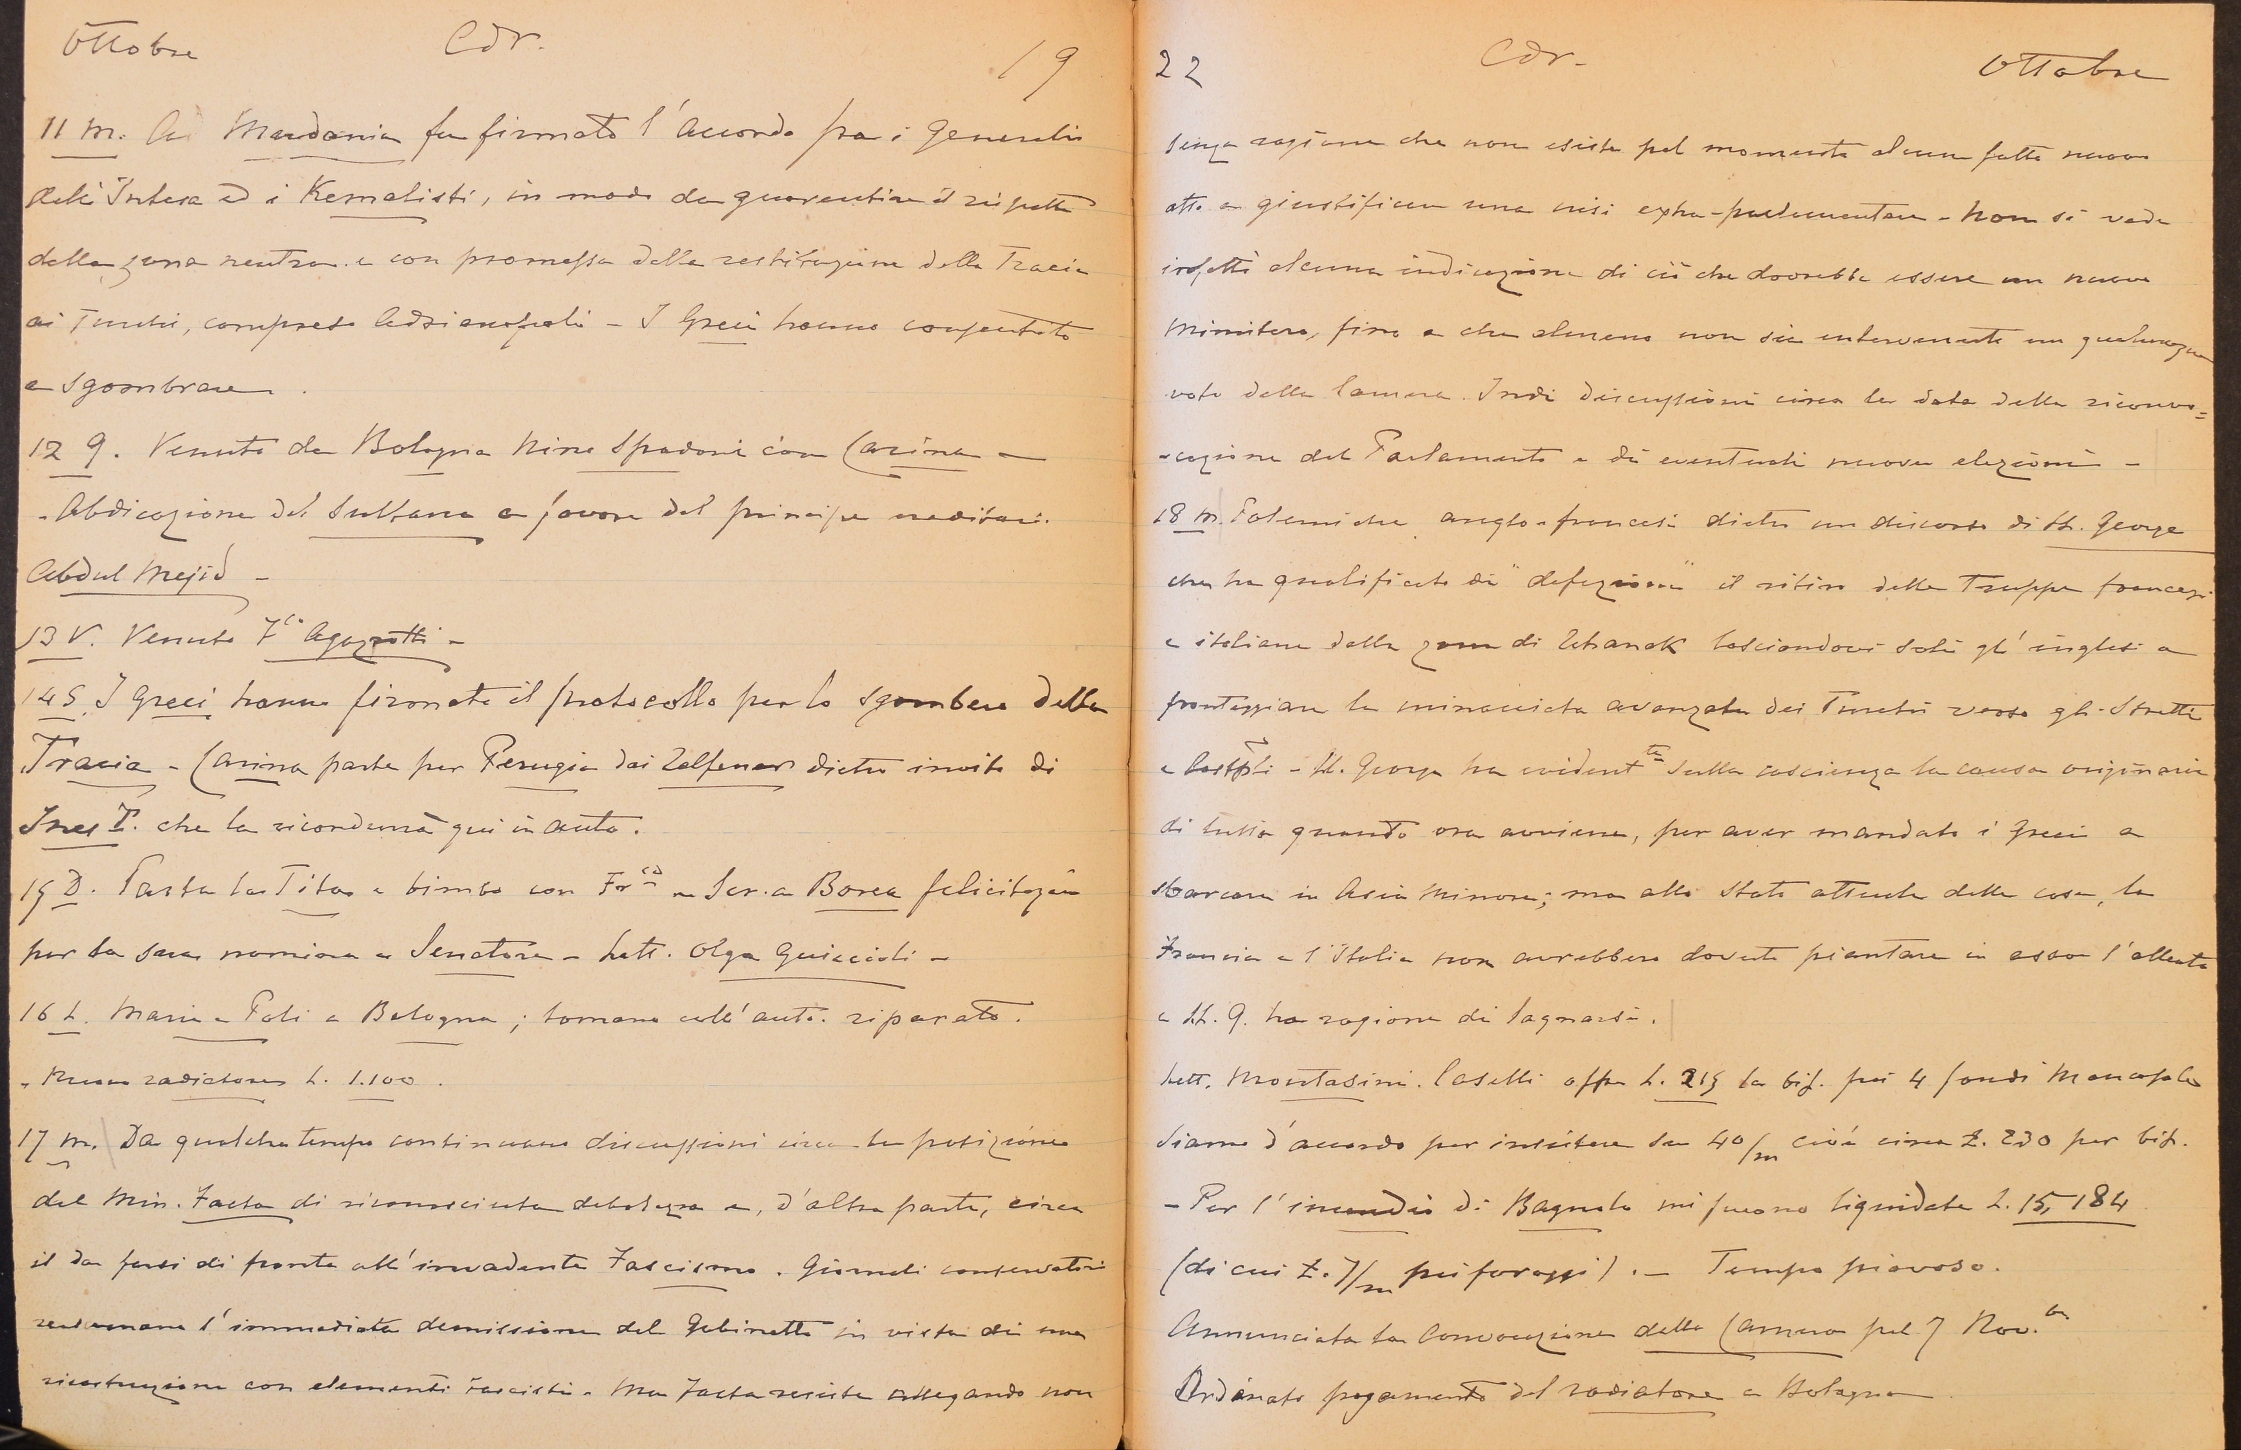 Ottobre Cdr. 19
11 M. A Mudania fu firmato l'accordo fra i Generali
dell'Intesa ed i Kemalisti, in modo da guarentire il rispetto
della zona neutra e con promessa della restituzione della Tracia
ai Turchi, compreso Adrianopoli – I Greci hanno consentito
a sgombrare.
12 G. Venuto da Bologna Nino Spadoni con Carina –
- Abdicazione del Sultano a favore del principe ereditario
Abdul Mejid –
13 V. Venuto Agazzotti –
14 S. I Greci hanno firmato il protocollo per lo sgombero della
Tracia – Carina parte per Perugia dai Zelfener dietro invito di
Ines T. che la ricondurrà qui in auto.
15 D. Parte la Tita e bimbo con Fr – Scr. a Borea felicitazni
per la sua nomina a Senatore – Lett. Olga Guiccioli –
16 L. Maria e Poli a Bologna; tornano coll'auto riparato.
- Nuovo radiatore L. 1.100.
17 M. Da qualche tempo continuano discussioni circa la posizione
del Min. Facta di riconosciuta debolezza e, d'altra parte, circa
il da farsi di fronte all'invadente Fascismo. Giornali conservatori
reclamano l'immediata demissione del Gabinetto in vista di una
ricostruzione con elementi Fascisti. Ma Facta resiste allegando non
22 Cdr. Ottobre
senza ragione che non esiste pel momento alcun fatto nuovo
atto a giustificare una crisi extra-parlamentare – Non si vede
infatti alcuna indicazione di ciò che dovrebbe essere un nuovo
Ministero, fino a che almeno non sia intervenuto un qualunque
voto della Camera. Indi discussioni circa la data della riconvo=
-cazione del Parlamento e di eventuali nuove elezioni –
18 M. Polemiche anglo-francesi dietro un discorso di Ll. George
che ha qualificato di "defezione" il ritiro delle Truppe francesi
e italiane dalla zona di Tchanak lasciandovi soli gl'inglesi a
fronteggiare la minacciata avanzata dei Turchi verso gli Stretti
e Costpli – Ll. George ha evidentte sulla coscienza la causa originaria
di tutto quanto ora avviene, per aver mandato i Greci a
sbarcare in Asia Minore; ma allo stato attuale delle cose, la
Francia e l'Italia non avrebbero dovuto piantare in asso l'alleata
e Ll. G. ha ragione di lagnarsi.
Lett. Montasini. Caselli offre L. 215 la bif. pei 4 fondi Moncafole
Siamo d'accordo per insistere su 40/m cioè circa L. 230 per bif.
– Per l'incendio di Bagnolo mi furono liquidate L. 15,184
(di cui L. 7/m pei foraggi). – Tempo piovoso.
Annunciata la Convocazione della Camera pel 7 Nov.bre
Ordinato pagamento del radiatore a Bologna.